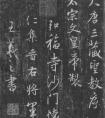 大唐三藏聖教序
太宗文皇帝製
弘福寺沙門
仁集晉右將軍
王羲之書